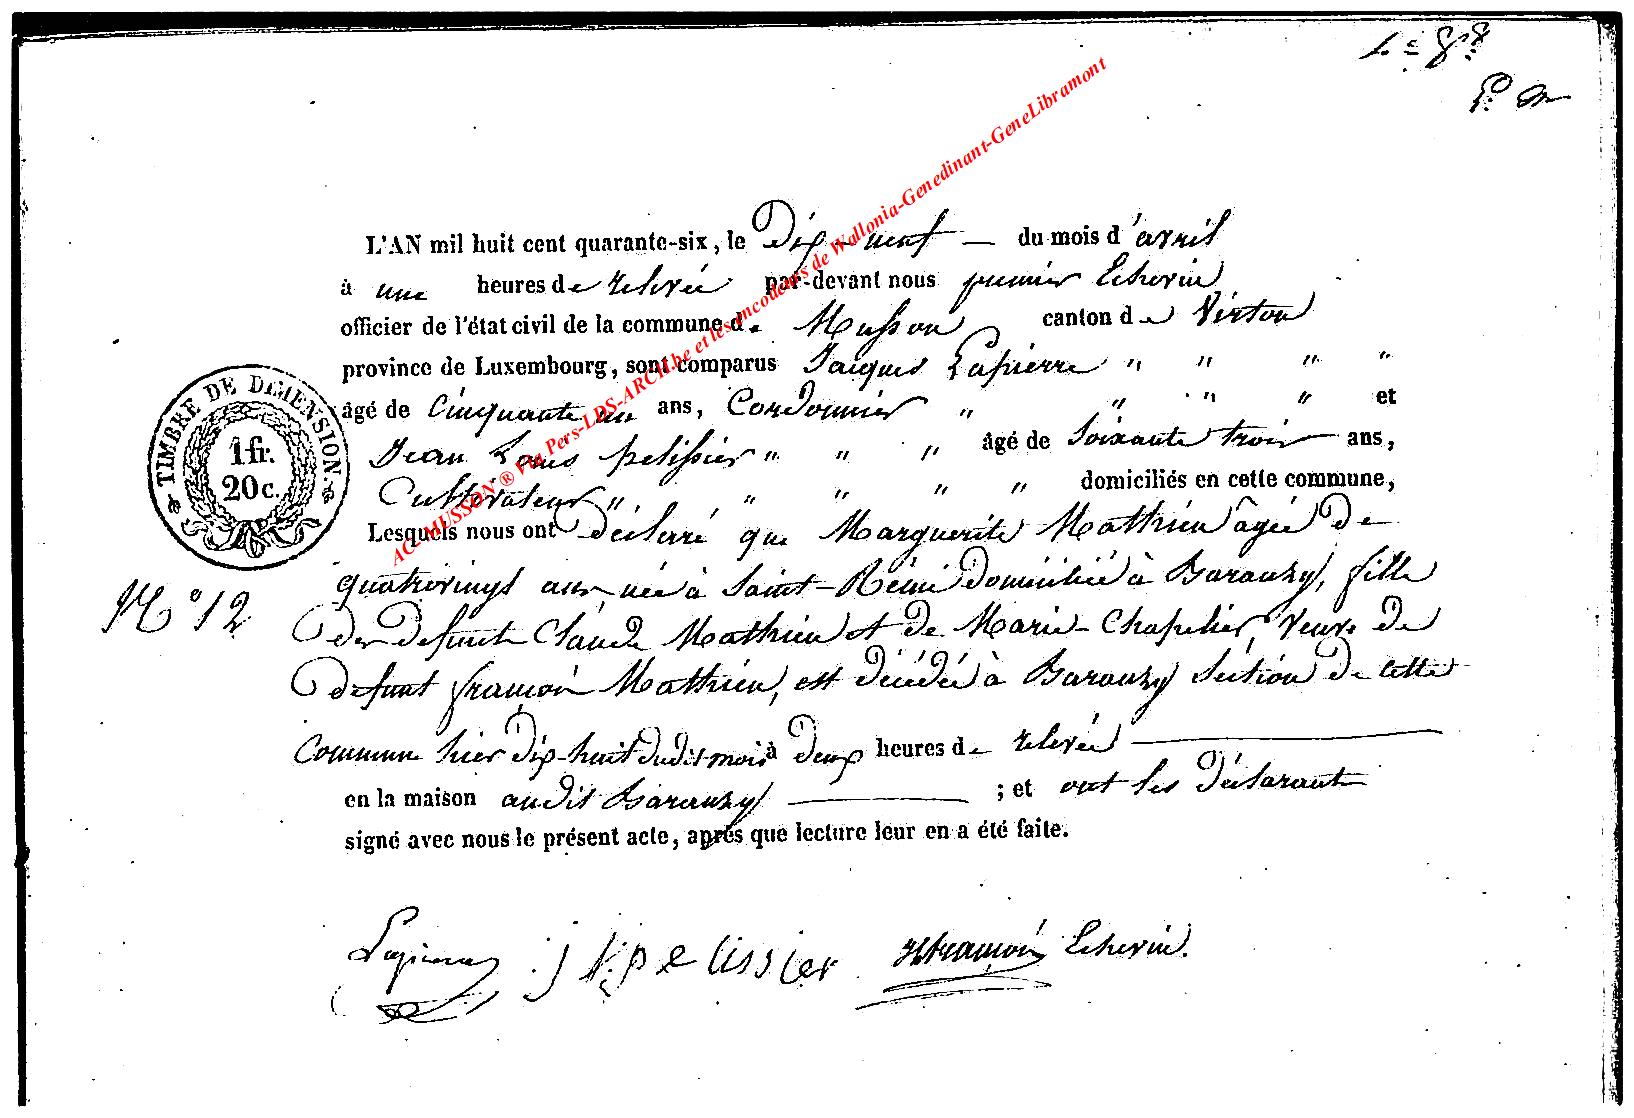 L'AN mil huit cent quarante-six, le Dix-neuf — du mois d'avril
à une heures de relevée par-devant nous premier Echevin
officier de l'état civil de la commune de Musson canton de Virton
province de Luxembourg, sont comparus Jacques Lapierre " " " "
âgé de Cinquante un ans, Cordonnier " " " " et
Jean Louis pelissier " " " âgé de Soixante trois ans,
Cultivateur " " " " " domiciliés en cette commune,
Lesquels nous ont déclaré que Marguerite Mathieu âgée de
quatrevingt ans, née à Saint-Rémi domiciliée à Baranzy, fille
des defunts Claude Mathieu et de Marie-Chapelier, veuve de
defunt françois Mathieu, est décédée à Baranzy Séction de cette
Commune hier dix-huit dudit mois à deux heures de relevée
en la maison audit Baranzy ; et ont les déclarant
signé avec nous le présent acte, après que lecture leur en a été faite.
TIMBRE DE DIMENSION.
1 fr.
20 c.
N° 12
Lapierre j l pelissier françois Echevin.
AC-MUSSON ® Via Pers-LDS-ARCH.be et les encodeurs de Wallonia-Genedinant-GeneLibramont